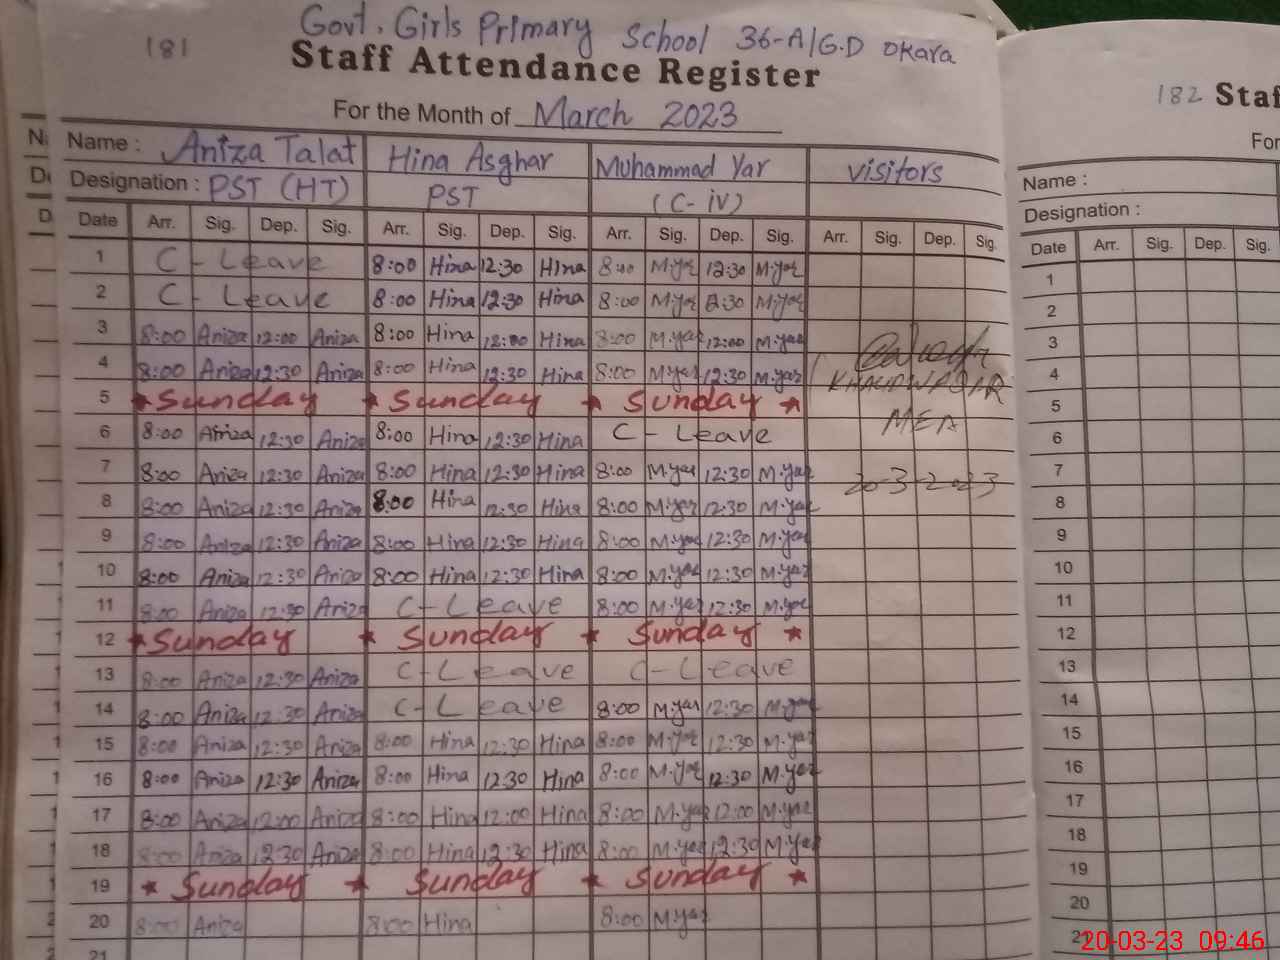 Govt. Girls Primary School 36-A/G.D Okara
181
Staff Attendance Register
For the Month of March 2023
Name : Aniza Talat Hina Asghar Muhammad Yar visitors
Designation : PST (HT) PST (C-iv)
Date Arr. Sig. Dep. Sig. Arr. Sig. Dep. Sig. Arr. Sig. Dep. Sig. Arr. Sig. Dep. Sig.
1 C-Leave 8:00 Hina 12:30 Hina 8:00 M.yar 12:30 M.yar
2 C-Leave 8:00 Hina 12:30 Hina 8:00 M.yar 12:30 M.yar
3 8:00 Aniza 12:00 Aniza 8:00 Hina 12:00 Hina 8:00 M.yar 12:00 M.yar
4 8:00 Aniza 12:30 Aniza 8:00 Hina 12:30 Hina 8:00 M.yar 12:30 M.yar KHALID WAQAR
5 * Sunday * Sunday * Sunday *
MEA
6 8:00 Aniza 12:30 Aniza 8:00 Hina 12:30 Hina C-Leave
7 8:00 Aniza 12:30 Aniza 8:00 Hina 12:30 Hina 8:00 M.yar 12:30 M.yar 20-3-2023
8 8:00 Aniza 12:30 Aniza 8:00 Hina 12:30 Hina 8:00 M.yar 12:30 M.yar
9 8:00 Aniza 12:30 Aniza 8:00 Hina 12:30 Hina 8:00 M.yar 12:30 M.yar
10 8:00 Aniza 12:30 Aniza 8:00 Hina 12:30 Hina 8:00 M.yar 12:30 M.yar
11 8:00 Aniza 12:30 Aniza C-Leave 8:00 M.yar 12:30 M.yar
12 * Sunday * Sunday * Sunday *
13 8:00 Aniza 12:30 Aniza C-Leave C-Leave
14 8:00 Aniza 12:30 Aniza C-Leave 8:00 M.yar 12:30 M.yar
15 8:00 Aniza 12:30 Aniza 8:00 Hina 12:30 Hina 8:00 M.yar 12:30 M.yar
16 8:00 Aniza 12:30 Aniza 8:00 Hina 12:30 Hina 8:00 M.yar 12:30 M.yar
17 8:00 Aniza 12:00 Aniza 8:00 Hina 12:00 Hina 8:00 M.yar 12:00 M.yar
18 8:00 Aniza 12:30 Aniza 8:00 Hina 12:30 Hina 8:00 M.yar 12:30 M.yar
19 * Sunday * Sunday * Sunday *
20 8:00 Aniza 8:00 Hina 8:00 M.yar
21
182 Staf
For
Name :
Designation :
Date Arr. Sig. Dep. Sig.
1
2
3
4
5
6
7
8
9
10
11
12
13
14
15
16
17
18
19
20
21
20-03-23 09:46